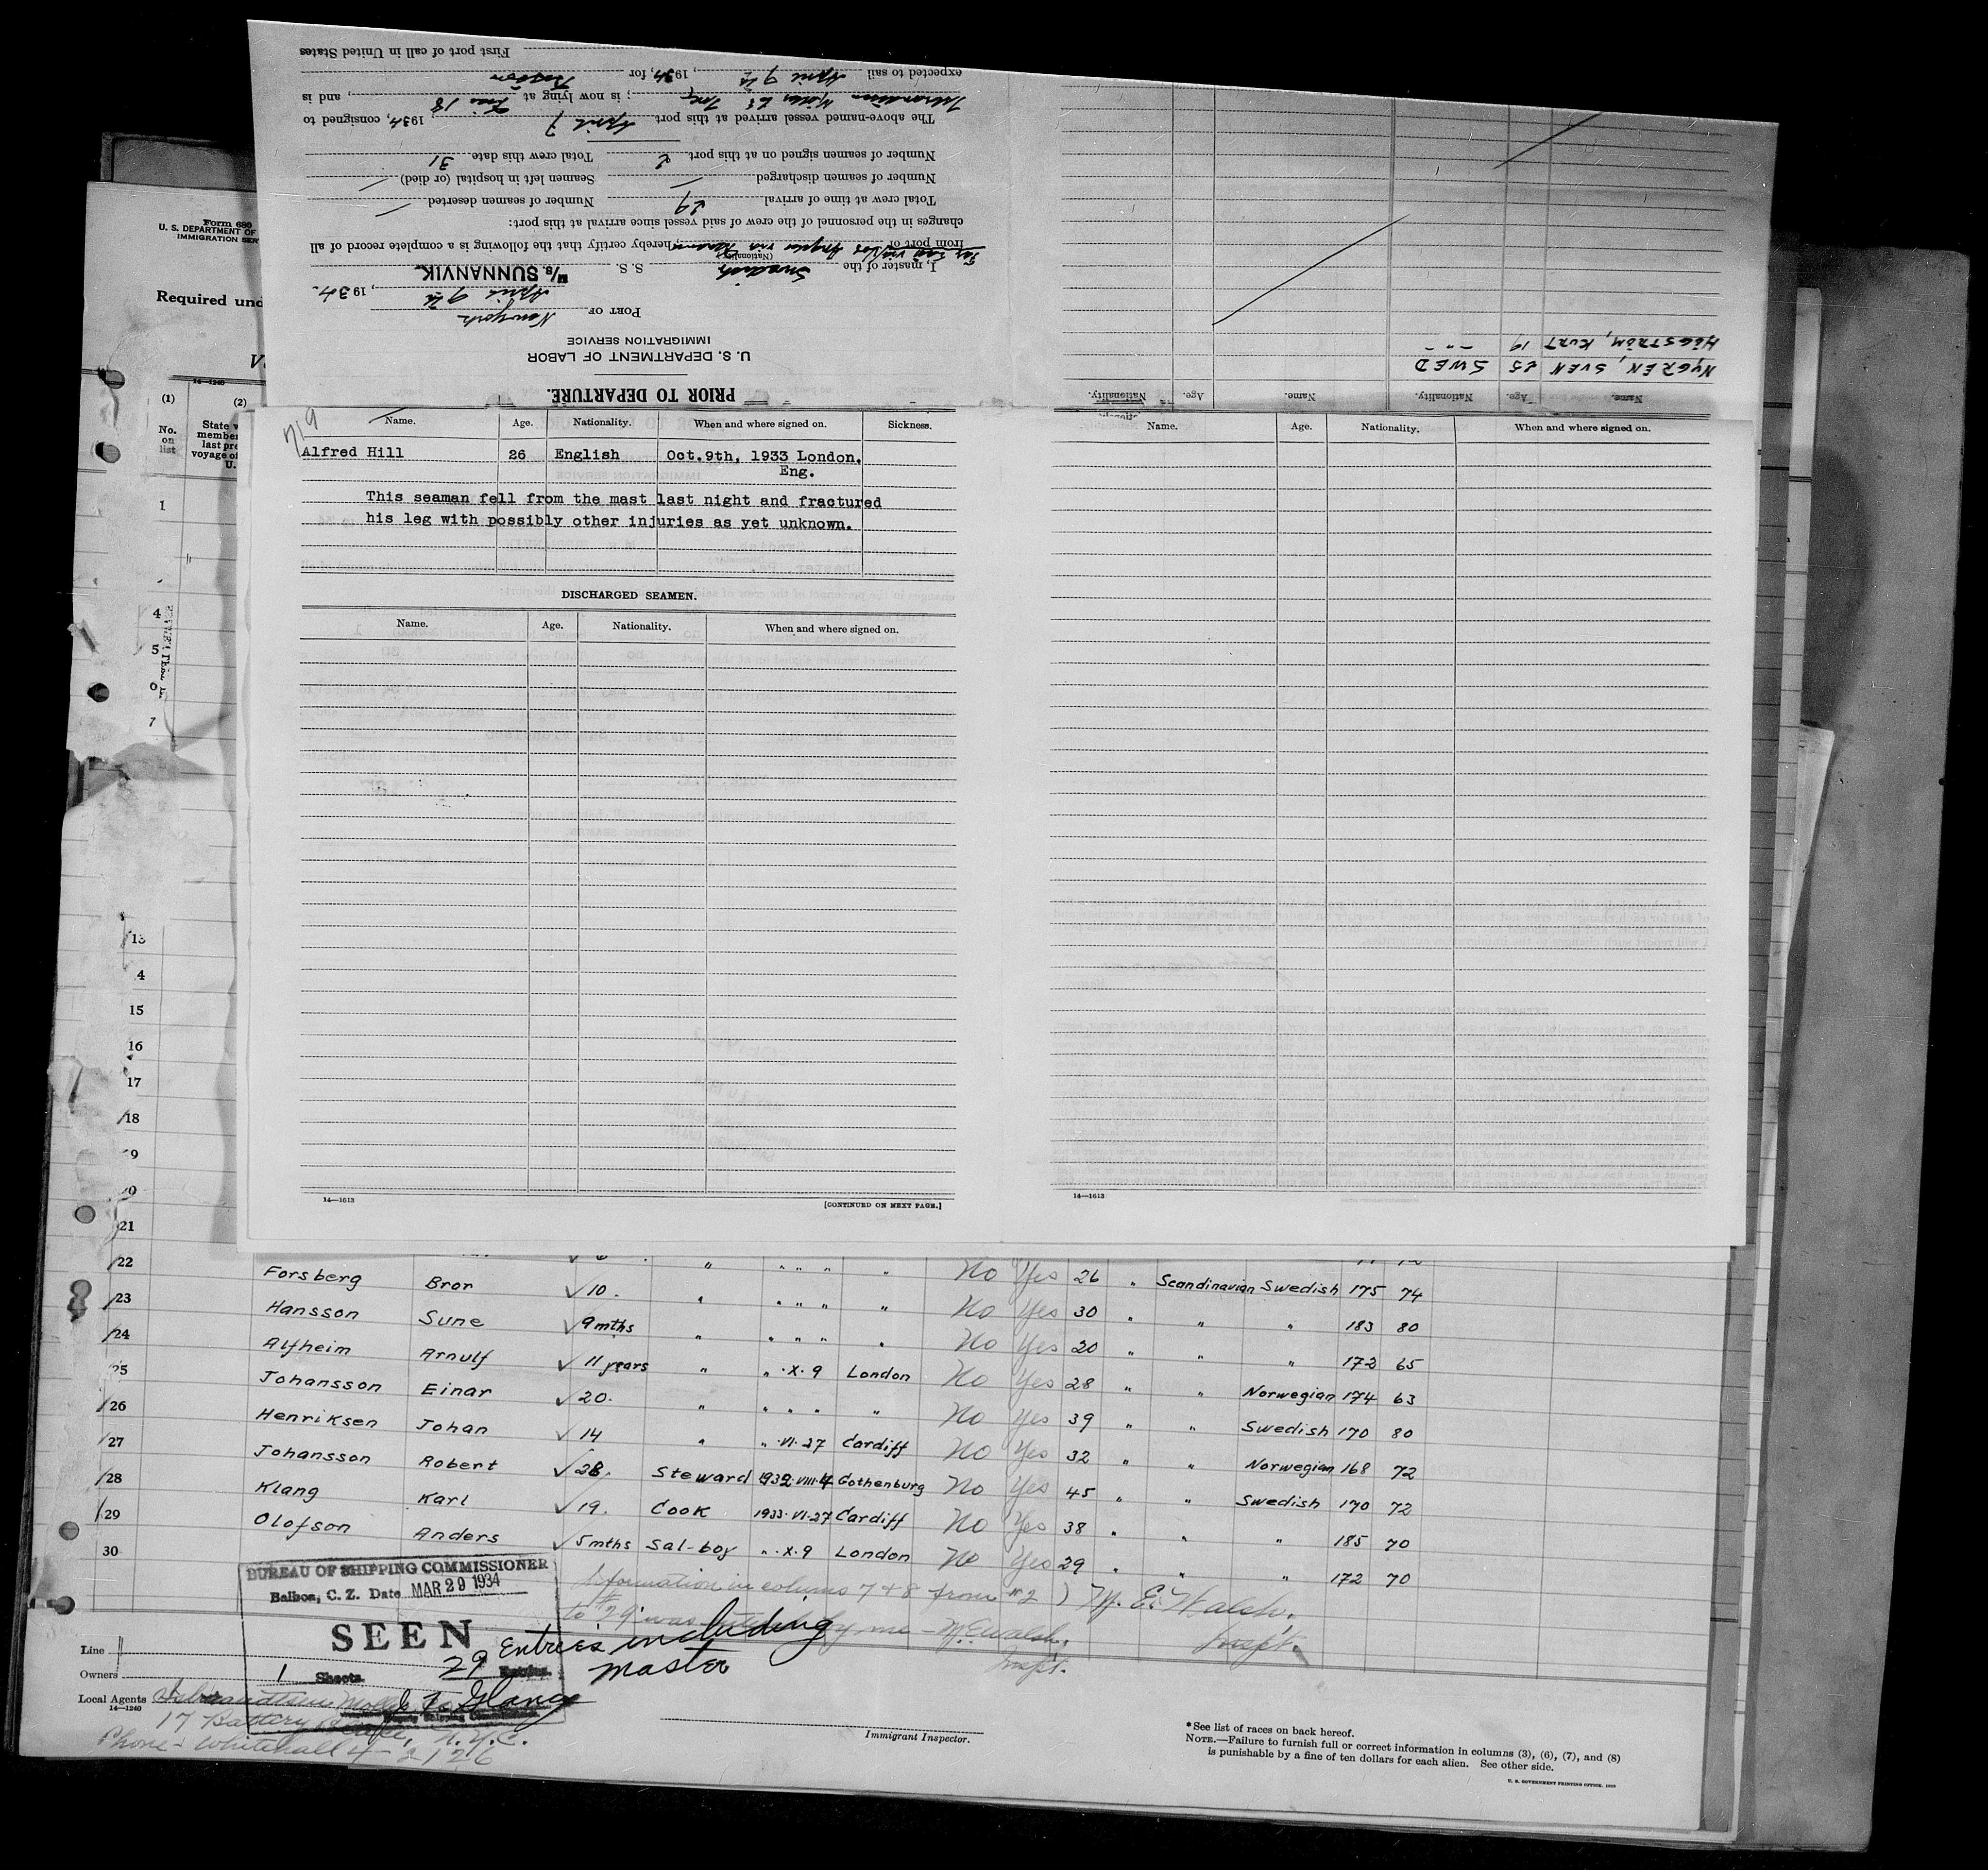 First port of call in United States
expected to sail April 9th, 1934, for Boston
Isbrandtsen Moller Co Inc; is now lying at Pier 18, and is
The above-named vessel arrived at this port April 7, 1934, consigned to
Number of seamen signed on at this port 2 Total crew this date 31
Number of seamen discharged — Seamen left in hospital (or died) —
Total crew at time of arrival 29 Number of seamen deserted —
changes in the personnel of the crew of said vessel since arrival at this port:
from port of Los Angeles via Panama, hereby certify that the following is a complete record of all
I, master of the Swedish S. S. M/S. SUNNANVIK
(Nationality)
April 9th, 1934.
PORT OF New York
IMMIGRATION SERVICE
U. S. DEPARTMENT OF LABOR
PRIOR TO DEPARTURE.
HÄGGSTRÖM, KURT 19 - " -
NYGREN, SVEN 25 SWED
Name. Age. Nationality. Name. Age. Nationality.
Form 680
U. S. DEPARTMENT OF
IMMIGRATION SER
Required und
14—1240
(1) (2)
No. on list
State w
member
last pre
voyage of
U.
1
4
5
7
13
4
15
16
17
18
9
21
719
Name. Age. Nationality. When and where signed on. Sickness.
Alfred Hill 26 English Oct.9th, 1933 London.
Eng.
This seaman fell from the mast last night and fractured
his leg with possibly other injuries as yet unknown.
DISCHARGED SEAMEN.
Name. Age. Nationality. When and where signed on.
14—1613 [CONTINUED ON NEXT PAGE.]
Name. Age. Nationality. When and where signed on.
14—1613
22 Forsberg Bror √ 10. " " " " " No Yes 26 " Scandinavian Swedish 175 74
23 Hansson Sune √ 9mths " " " " " No Yes 30 " " " 183 80
24 Alfheim Arnulf √ 11 years " " " " " No Yes 20 " " " 172 65
25 Johansson Einar √ 20. " " ·X·9 London No Yes 28 " " Norwegian 174 63
26 Henriksen Johan √ 14 " " " " " No Yes 39 " " Swedish 170 80
27 Johansson Robert √ 28. " " ·VI·27 Cardiff No Yes 32 " " Norwegian 168 72
28 Klang Karl √ 19. Steward 1932·VIII·4 Gothenburg No Yes 45 " " Swedish 170 72
29 Olofson Anders √ 5mths Cook 1933·VI·27 Cardiff No Yes 38 " " " 185 70
30 Sal-boy " ·X·9 London No Yes 29 " " " 172 70
BUREAU OF SHIPPING COMMISSIONER
Balboa, C. Z. Date MAR 29 1934
SEEN
1 Sheets. 29 Entries.
Entries including
master
Information in colums 7 & 8 from #2 ) M. E. Walsh,
to #29 was by me - M.E. Walsh, Inspt.
Inspt.
Line
Owners
Local Agents Isbrandtsen Moller Co
14—1240
17 Battery Place, N.Y.C.
Phone - Whitehall 4-2126
Immigrant Inspector.
*See list of races on back hereof.
NOTE.—Failure to furnish full or correct information in columns (3), (6), (7), and (8)
is punishable by a fine of ten dollars for each alien. See other side.
U. S. GOVERNMENT PRINTING OFFICE